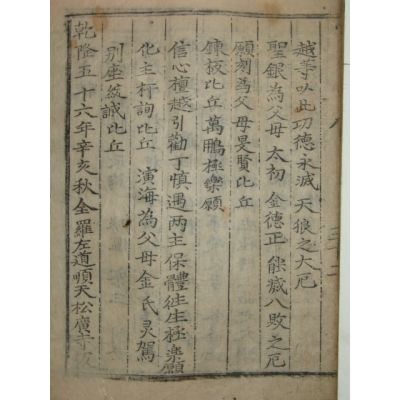 越等以此功德永滅 天狼之大厄
聖銀為父母 太初 金德正 能滅八敗之厄
願刻為父母旻賢比丘
鍊板比丘萬鵬極樂願
信心檀越引勸丁慎遇兩主 保體徃生極樂願
化主杆詢比丘 演海為父母金氏灵駕
別座絃誠比丘
乾隆五十六年辛亥秋全羅左道順天松廣寺